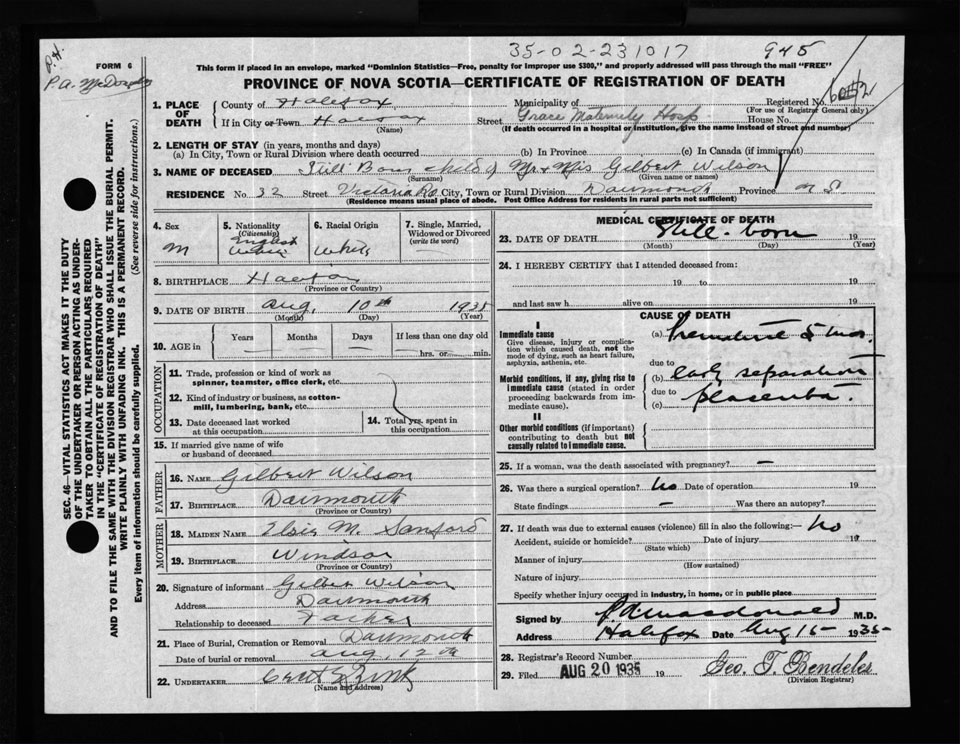 35-02-23 1017
945
FORM 6
This form if placed in an envelope, marked "Dominion Statistics—Free, penalty for improper use $300," and properly addressed will pass through the mail "FREE"
PROVINCE OF NOVA SCOTIA—CERTIFICATE OF REGISTRATION OF DEATH
SEC. 46—VITAL STATISTICS ACT MAKES IT THE DUTY
OF THE UNDERTAKER OR PERSON ACTING AS UNDER-
TAKER TO OBTAIN ALL THE PARTICULARS REQUIRED
IN THE "CERTIFICATE OF REGISTRATION OF DEATH"
AND TO FILE THE SAME WITH THE DIVISION REGISTRAR WHO SHALL ISSUE THE BURIAL PERMIT.
WRITE PLAINLY WITH UNFADING INK. THIS IS A PERMANENT RECORD.
Every item of information should be carefully supplied. (See reverse side for instructions.)
1. PLACE OF DEATH
County of Halifax Municipality of Registered No.
(For use of Registrar General only)
If in City or Town Halifax Street Grace Maternity Hosp House No.
(Name) (If death occurred in a hospital or institution, give the name instead of street and number)
2. LENGTH OF STAY (in years, months and days)
(a) In City, Town or Rural Division where death occurred (b) In Province (c) In Canada (if immigrant)
3. NAME OF DECEASED Still Born child of Mr & Mrs Gilbert Wilson
(Surname) (Given name or names)
RESIDENCE No. 32 Street Victoria Rd City, Town or Rural Division Dartmouth Province N S
(Residence means usual place of abode. Post Office Address for residents in rural parts not sufficient)
4. Sex M
5. Nationality (Citizenship) English
6. Racial Origin White
7. Single, Married, Widowed or Divorced (write the word) —
8. BIRTHPLACE Halifax
(Province or Country)
9. DATE OF BIRTH Aug. 10th 1935
(Month) (Day) (Year)
10. AGE in Years Months Days If less than one day old
hrs. or min.
OCCUPATION
11. Trade, profession or kind of work as spinner, teamster, office clerk, etc.
12. Kind of industry or business, as cotton-mill, lumbering, bank, etc.
13. Date deceased last worked at this occupation
14. Total yrs. spent in this occupation
15. If married give name of wife or husband of deceased
FATHER
16. NAME Gilbert Wilson
17. BIRTHPLACE Dartmouth
(Province or Country)
MOTHER
18. MAIDEN NAME Elsie M. Sanford
19. BIRTHPLACE Windsor
(Province or Country)
20. Signature of informant Gilbert Wilson
Address Dartmouth
Relationship to deceased Father
21. Place of Burial, Cremation or Removal Dartmouth
Date of burial or removal Aug. 12th
22. UNDERTAKER
(Name and address)
MEDICAL CERTIFICATE OF DEATH
23. DATE OF DEATH Still-born 19
(Month) (Day) (Year)
24. I HEREBY CERTIFY that I attended deceased from:
19 to 19
and last saw h alive on 19
CAUSE OF DEATH
I
Immediate cause
Give disease, injury or complication which caused death, not the mode of dying, such as heart failure, asphyxia, asthenia, etc.
(a)
due to
Morbid conditions, if any, giving rise to immediate cause (stated in order proceeding backwards from immediate cause).
(b) early separation
due to
(c) placenta.
II
Other morbid conditions (if important) contributing to death but not causally related to immediate cause.
25. If a woman, was the death associated with pregnancy? —
26. Was there a surgical operation? No Date of operation 19
State findings — Was there an autopsy?
27. If death was due to external causes (violence) fill in also the following:— No
Accident, suicide or homicide? Date of injury 19
(State which)
Manner of injury
(How sustained)
Nature of injury
Specify whether injury occurred in industry, in home, or in public place
Signed by P.A. Macdonald M.D.
Address Halifax Date Aug 15 1935
28. Registrar's Record Number
29. Filed AUG 20 1935 19 Geo. T. Bendeles
(Division Registrar)